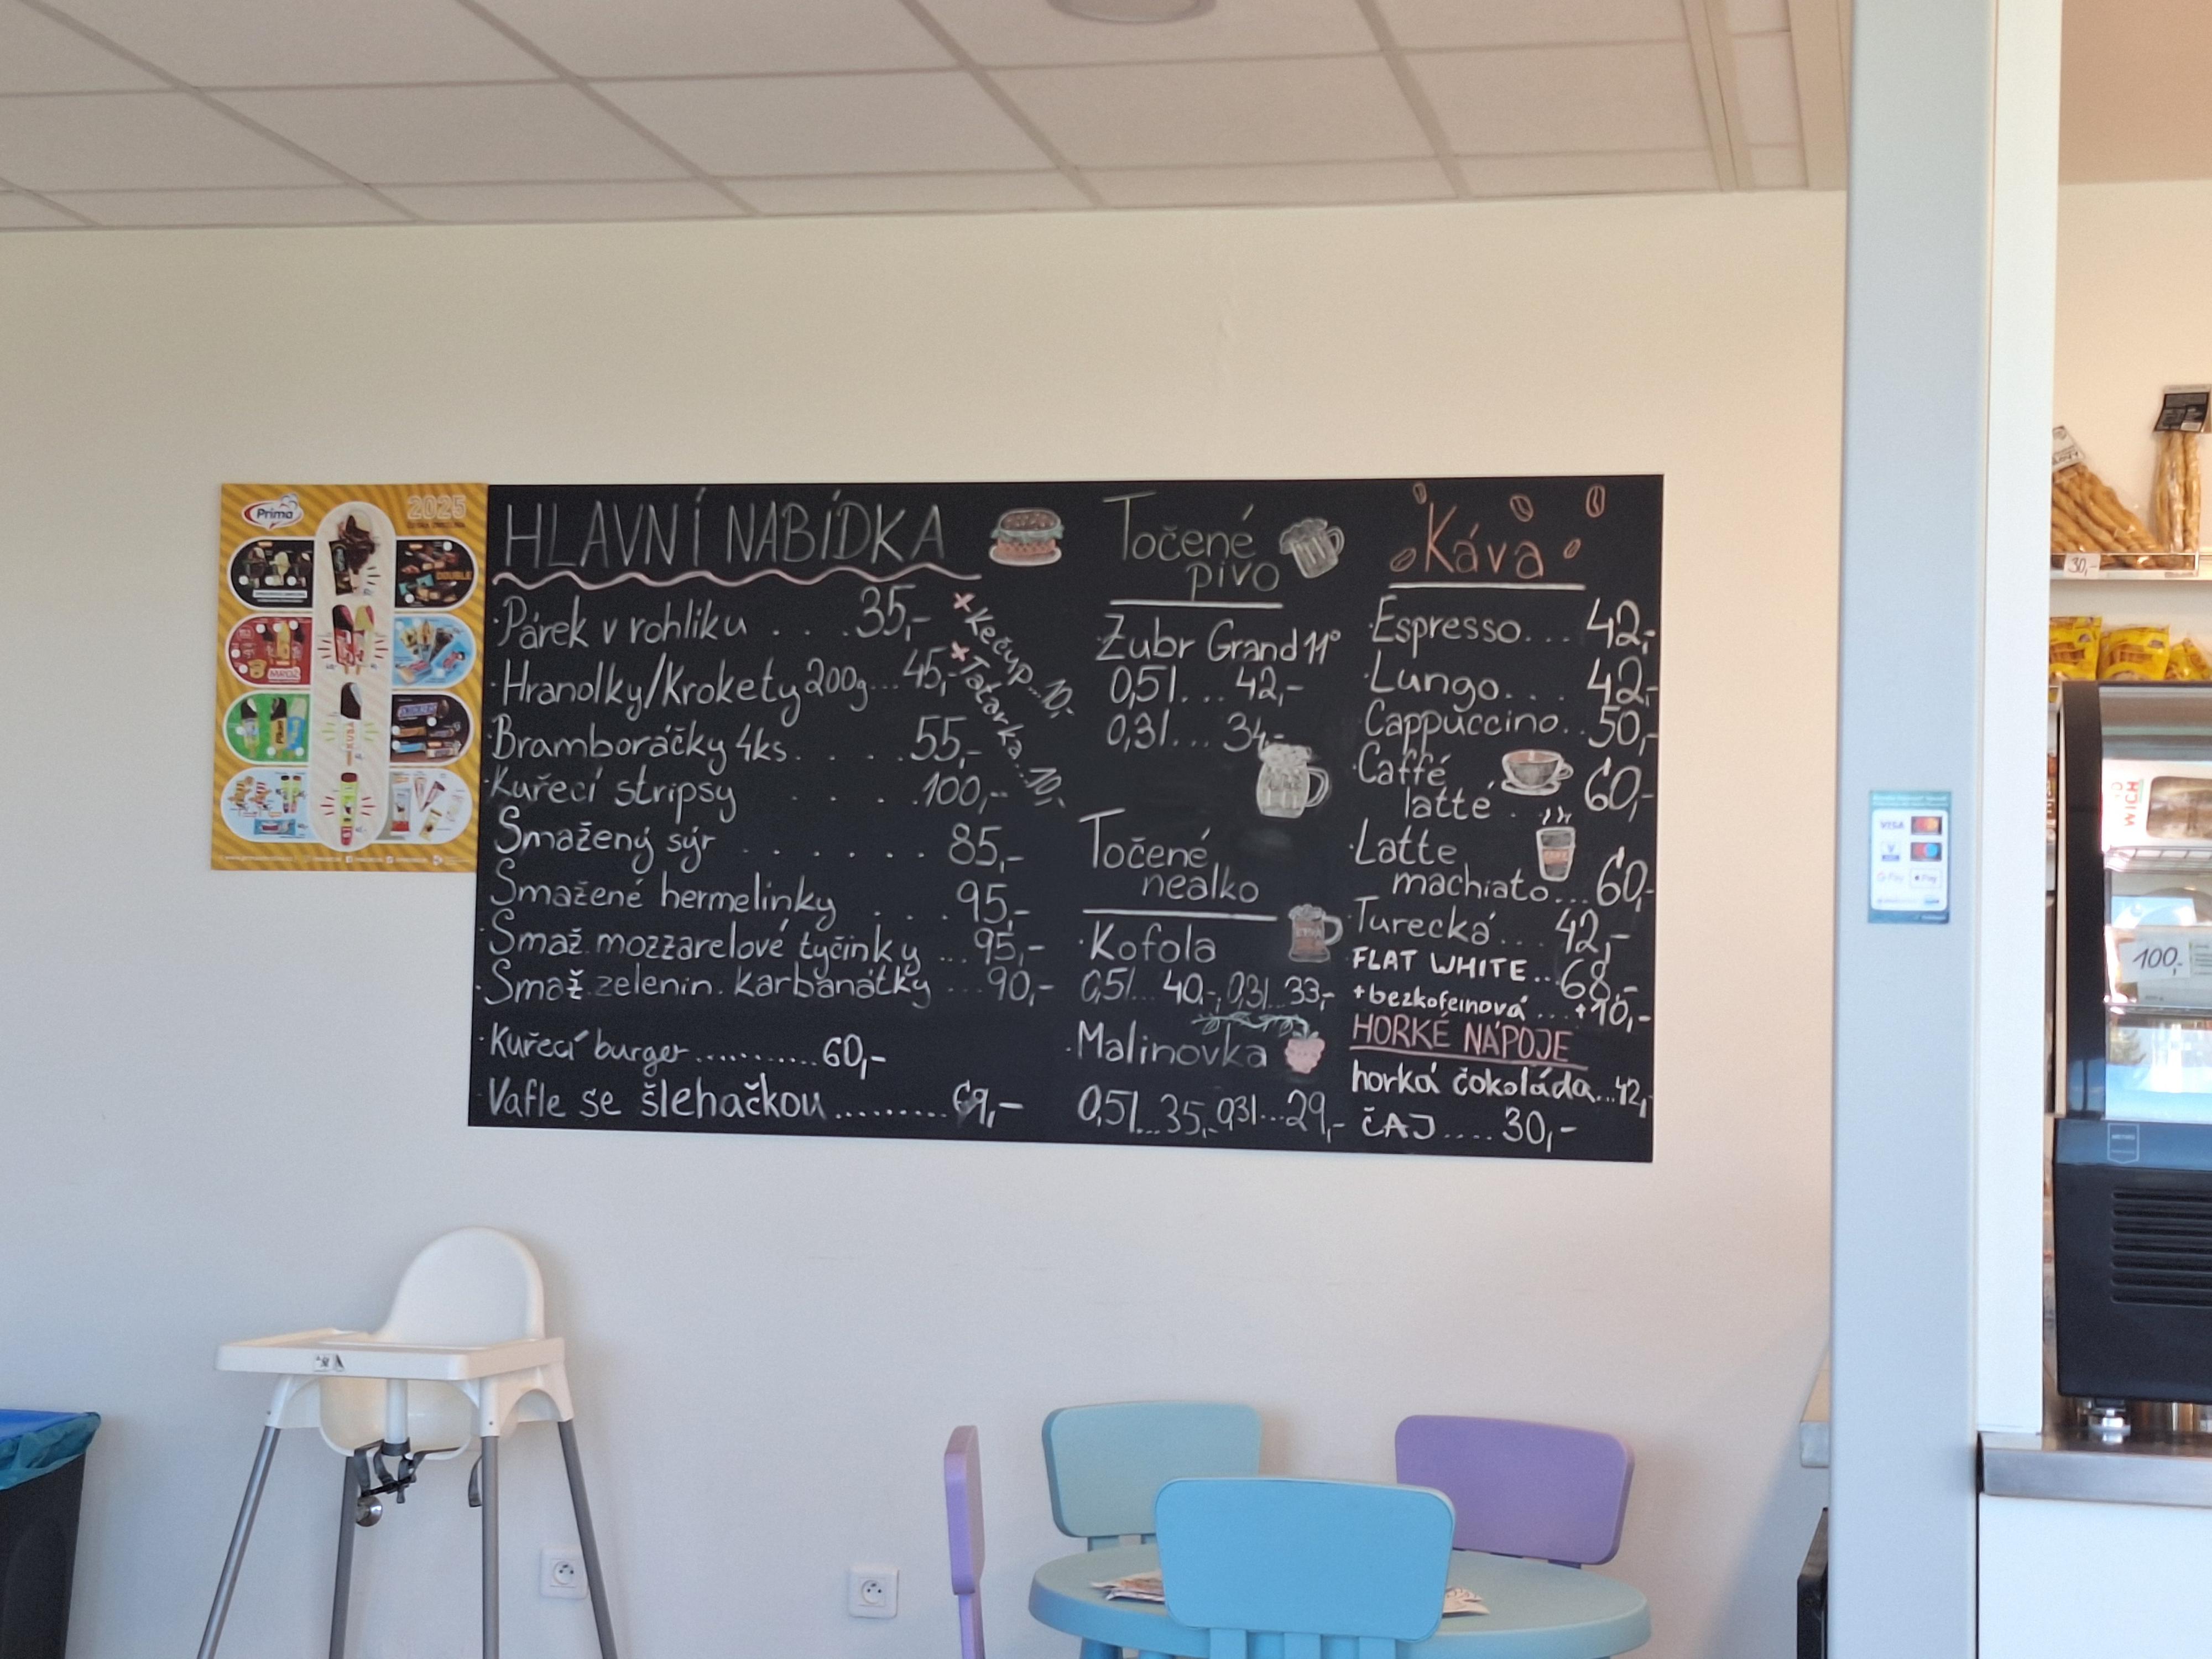 Prima
2025
DOUBLE
MROŽ
HLAVNÍ NABÍDKA
Párek v rohlíku . . . 35,-
Hranolky/Krokety 200g...45,-
Bramboráčky 4ks. . . . . 55,-
Kuřecí stripsy . . . . .100,-
Smažený sýr . . . . . . . 85,-
Smažené hermelínky . . . 95,-
Smaž. mozzarelové tyčinky ... 95,-
Smaž. zelenin. karbanátky ... 90,-
Kuřecí burger............60,-
Vafle se šlehačkou..........69,-
× Kečup...10,-
× Tatarka...10,-
Točené
pivo
Zubr Grand 11°
0,5l... 42,-
0,3l... 34,-
Točené
nealko
Kofola
0,5l... 40,-, 0,3l...33,-
Malinovka
0,5l...35,- 0,3l...29,-
Káva
Espresso... 42,-
Lungo... 42,-
Cappuccino..50,-
Caffé
latté . . 60,-
Latte
machiato...60,-
Turecká... 42,-
FLAT WHITE...68,-
+bezkofeinová ... +10,-
HORKÉ NÁPOJE
horká čokoláda...42,-
ČAJ.....30,-
VISA
G Pay
Pay
30,-
WICH
100,-